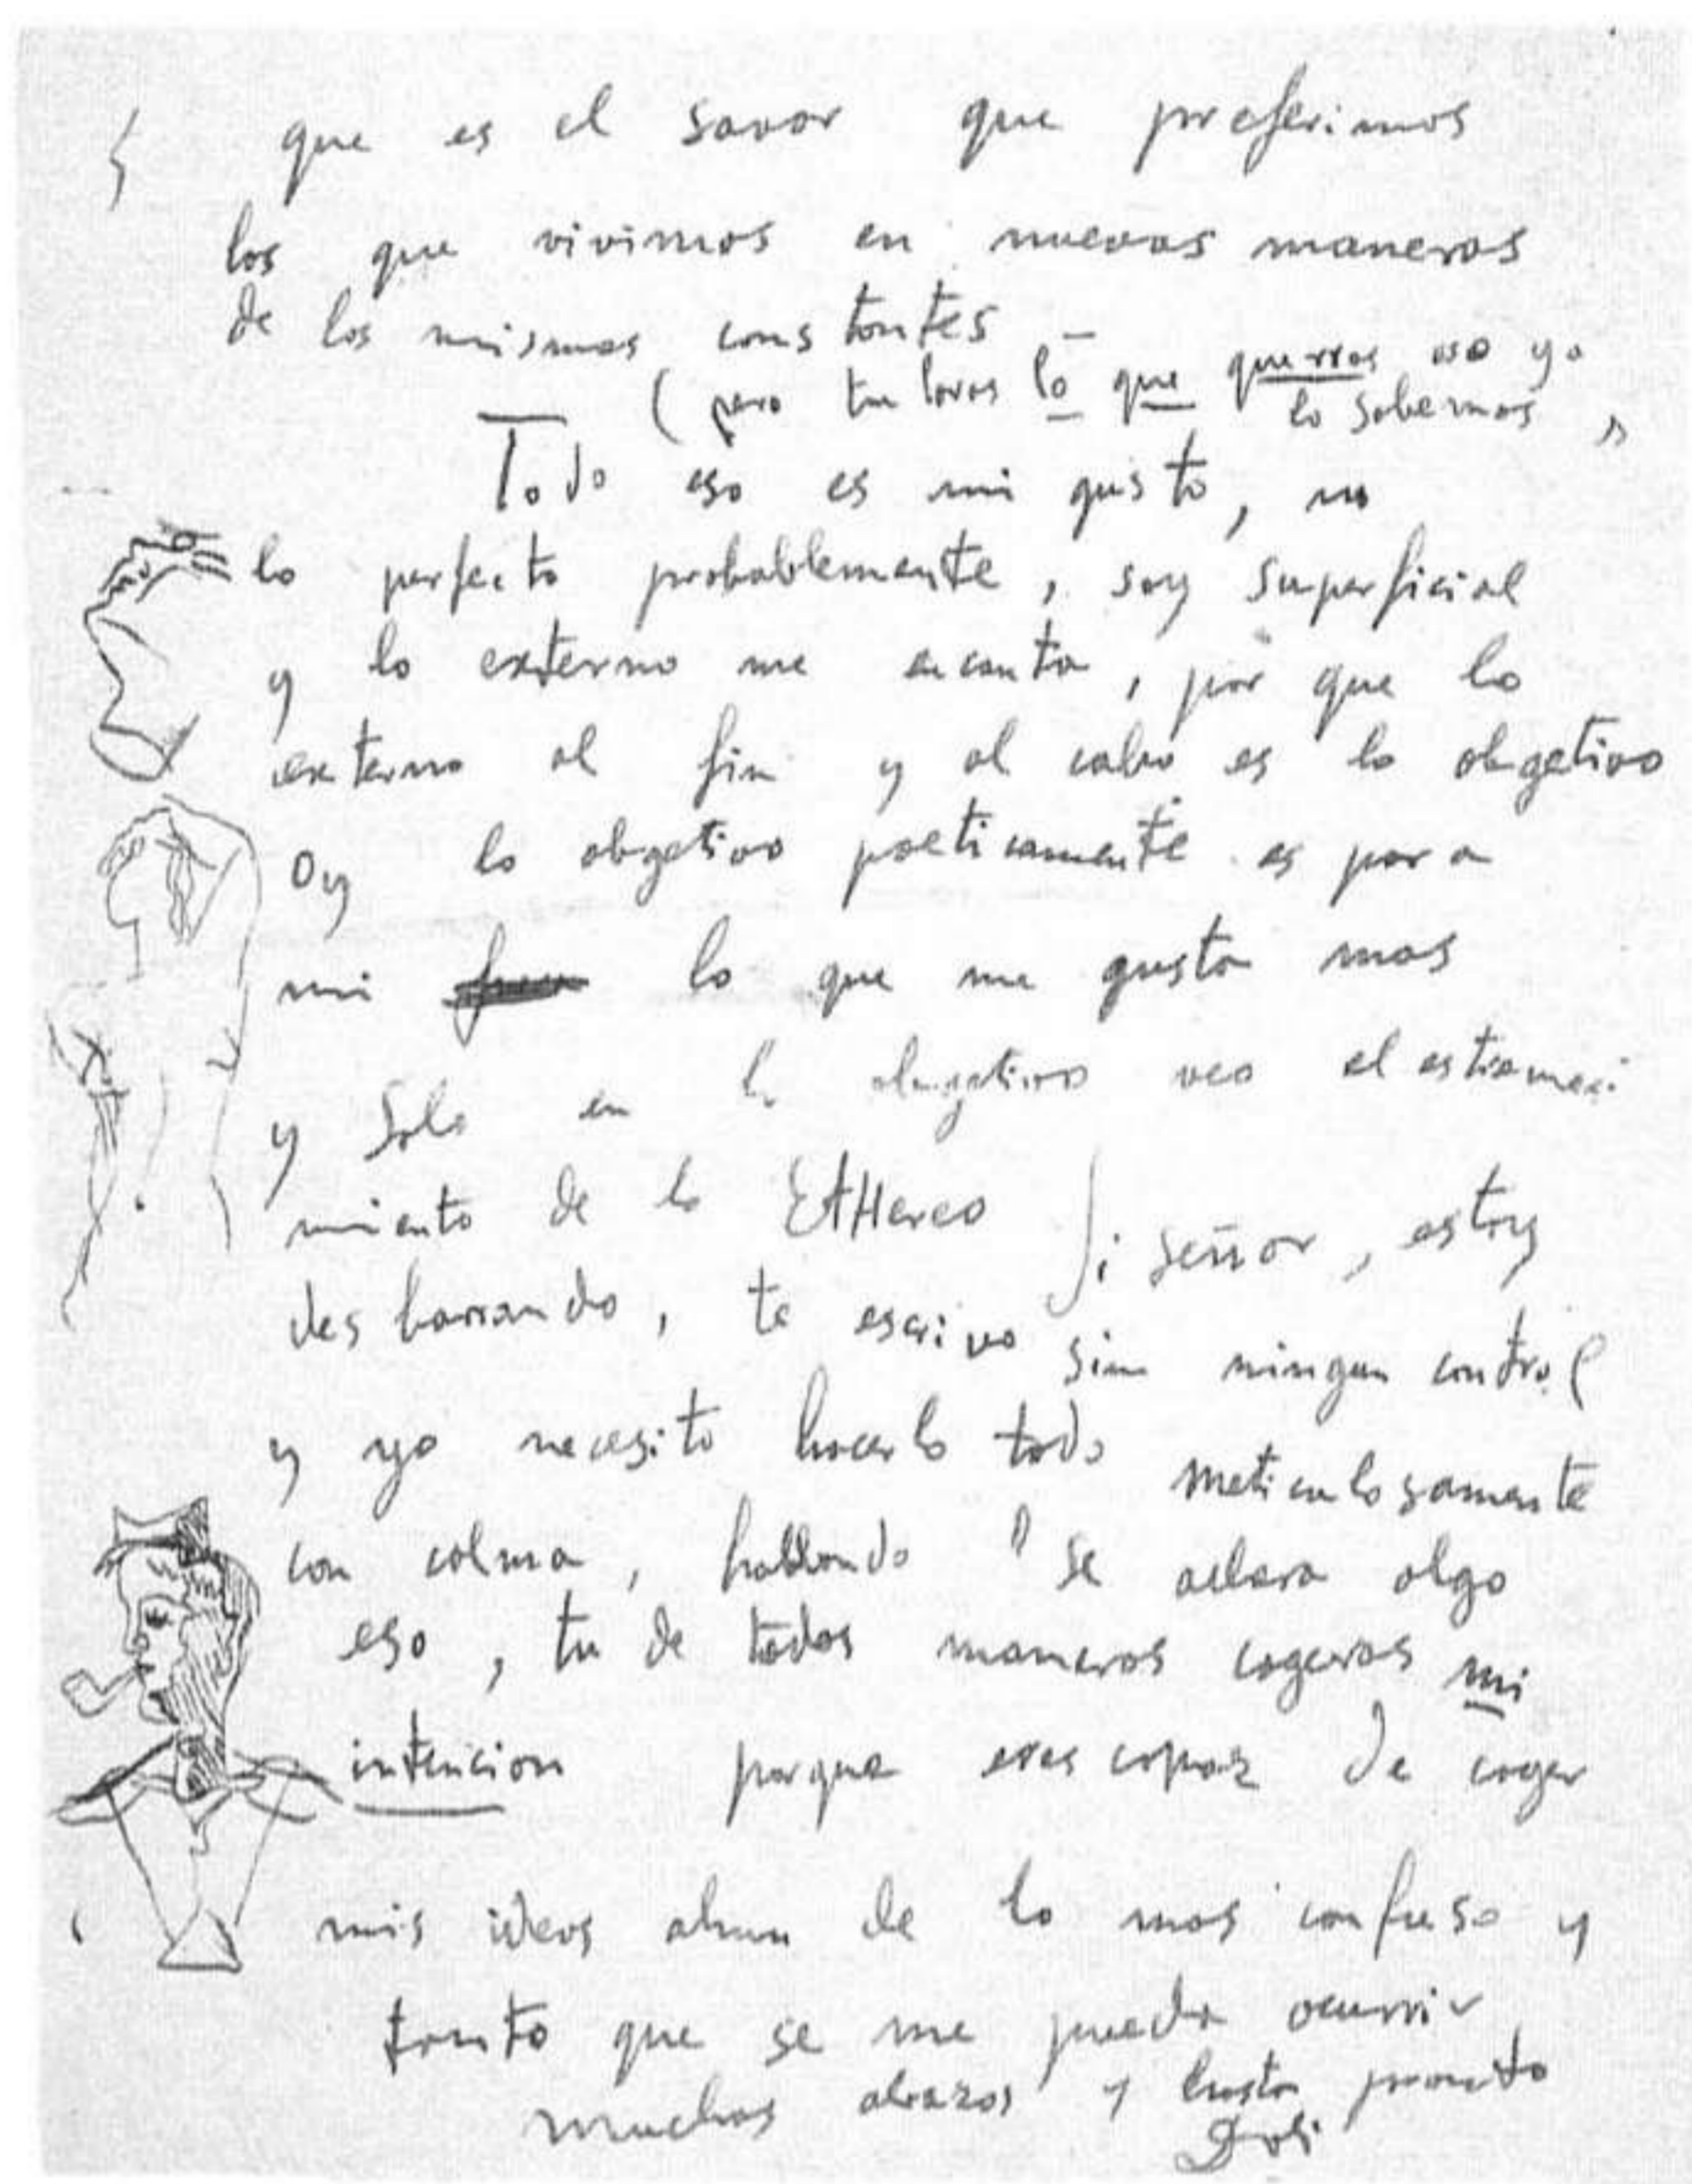 que es el savor que preferimos
los que vivimos en nuevas maneras
de las mismas constantes —
(pero tu haras lo que querras eso ya
lo sabemos
Todo eso es mi gusto, no
lo perfecto probablemente, soy superficial
y lo externo me encanta, por que lo
externo al fin y al cabo es lo obgetivo
Oy lo obgetivo poeticamente es para
mi lo que me gusta mas
y solo en lo obgetivo veo el estremeci
miento de lo EtHereo Si señor, estoy
desbarrando, te escrivo sin ningun control
y yo necesito hacerlo todo meticulosamente
con calma, hablando se aclara algo
eso, tu de todas maneras cogeras mi
intencion porque eres capaz de coger
mis ideas ahun de lo mas confuso y
tonto que se me pueda ocurrir
muchos abrazos y hasta pronto
Dali